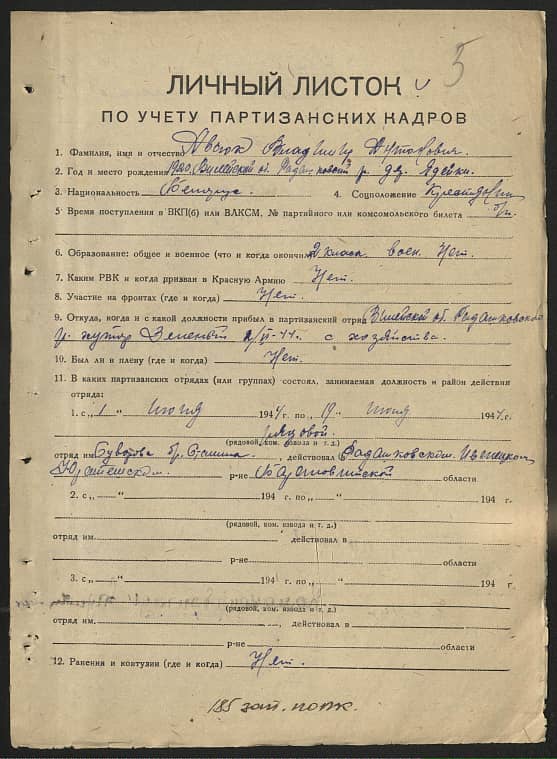 5
ЛИЧНЫЙ ЛИСТОК
ПО УЧЕТУ ПАРТИЗАНСКИХ КАДРОВ
1. Фамилия, имя и отчество Авсюк Владимир
2. Год и место рождения 1920, Вилейской об. Радашковский р. дер.
3. Национальность Беларус 4. Соцположение
5. Время поступления в ВКП(б) или ВЛКСМ, № партийного или комсомольского билета б/п.
6. Образование: общее и военное (что и когда окончил) 2 класса воен. Нет.
7. Каким РВК и когда призван в Красную Армию Нет.
8. Участие на фронтах (где и когда) Нет.
9. Откуда, когда и с какой должности прибыл в партизанский отряд Вилейской об. Радашковского
р. хутор с хозяйства.
10. Был ли в плену (где и когда) Нет.
11. В каких партизанских отрядах (или группах) состоял, занимаемая должность и район действия
отряда:
1. с „ 1 “ 1944 г. по „ 19 “ 1944 г.
рядовой
(рядовой, ком. взвода и т. д.)
отряд им. Суворова бр. Сталина, действовал в Радашковском. Ивенецком
р-не Барановичской области
2. с „ “ 194 г. по „ “ 194 г.
(рядовой, ком. взвода и т. д.)
отряд им. действовал в
р-не области
3. с „ “ 194 г. по „ “ 194 г.
(рядовой, ком. взвода и т. д.)
отряд им. действовал в
р-не области
12. Ранения и контузии (где и когда) Нет.
185 зап. полк.